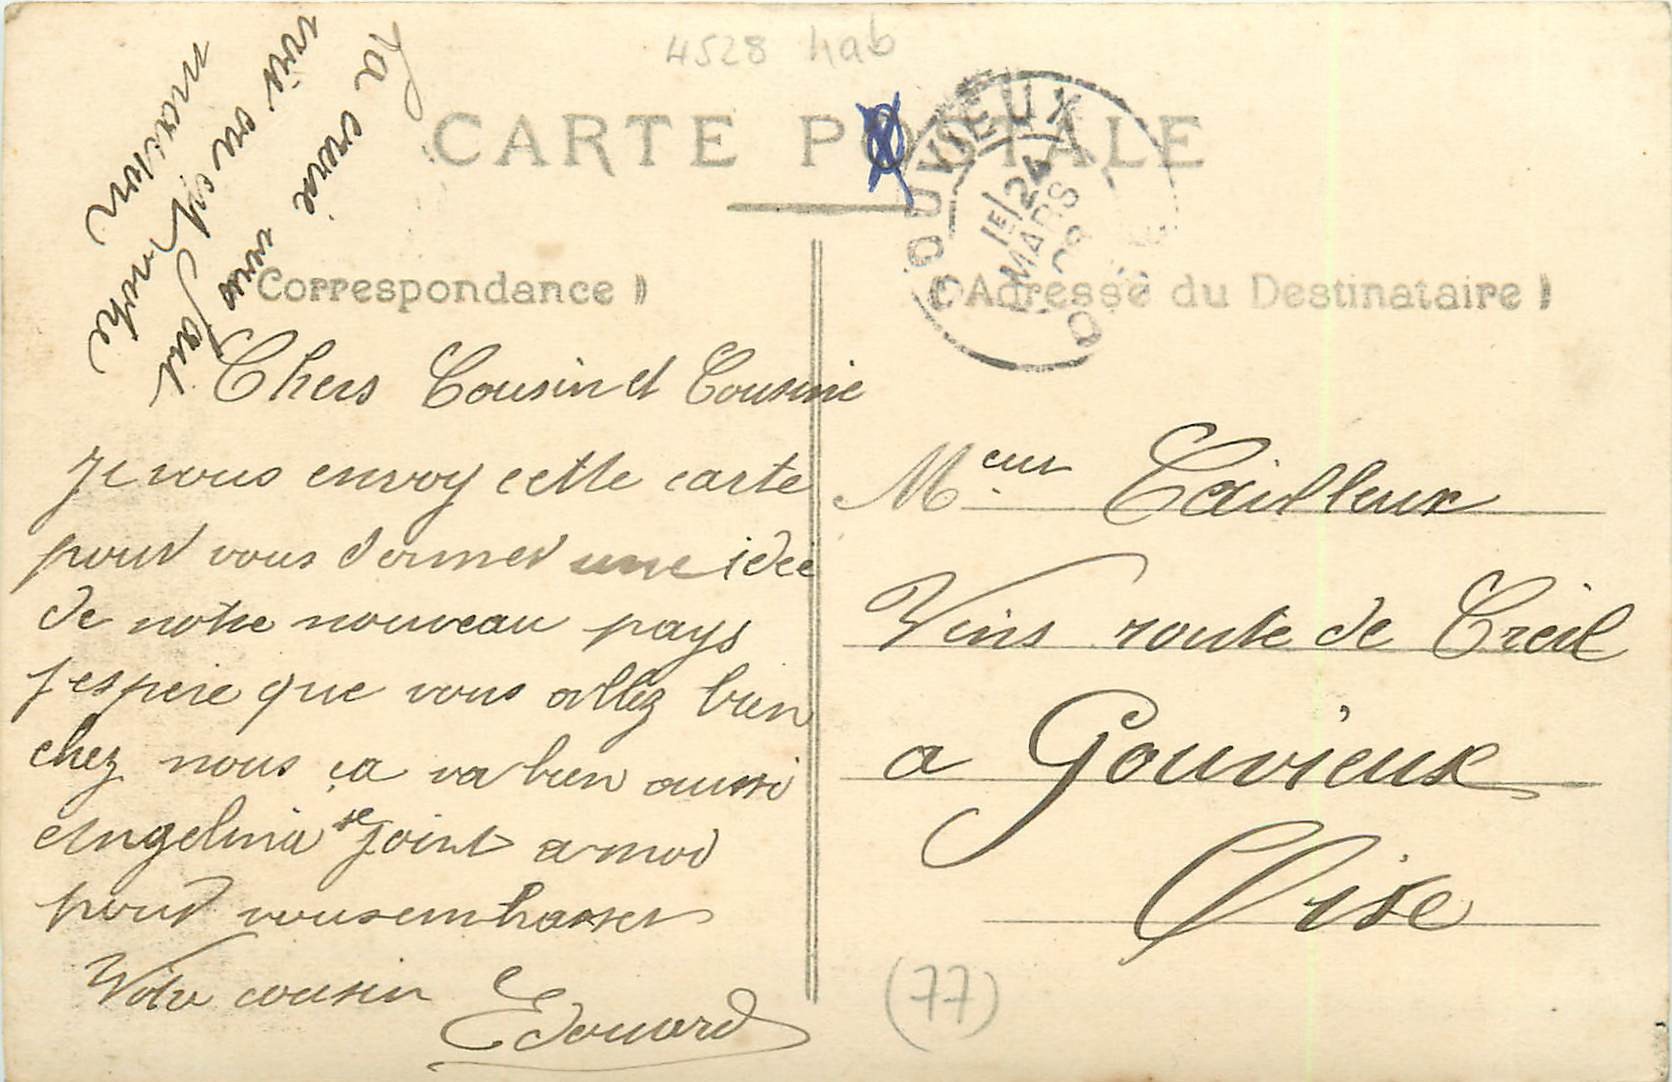 4528 hab
CARTE POSTALE
GOUVIEUX
1E/24
MARS
09
OISE
(Correspondance)
(Adresse du Destinataire)
La croix vous
vois ou est
notre
maison
Chers Cousin et Cousine
Je vous envoy cette carte
pour vous donner une idée
de notre nouveau pays
J'espere que vous allez bien
chez nous ça va bien aussi
Angelina se joint a moi
pour vous embrasser
Votre cousin
Edouard
Meur Tailleur
Vins route de Creil
a Gouvieux
Oise
(77)